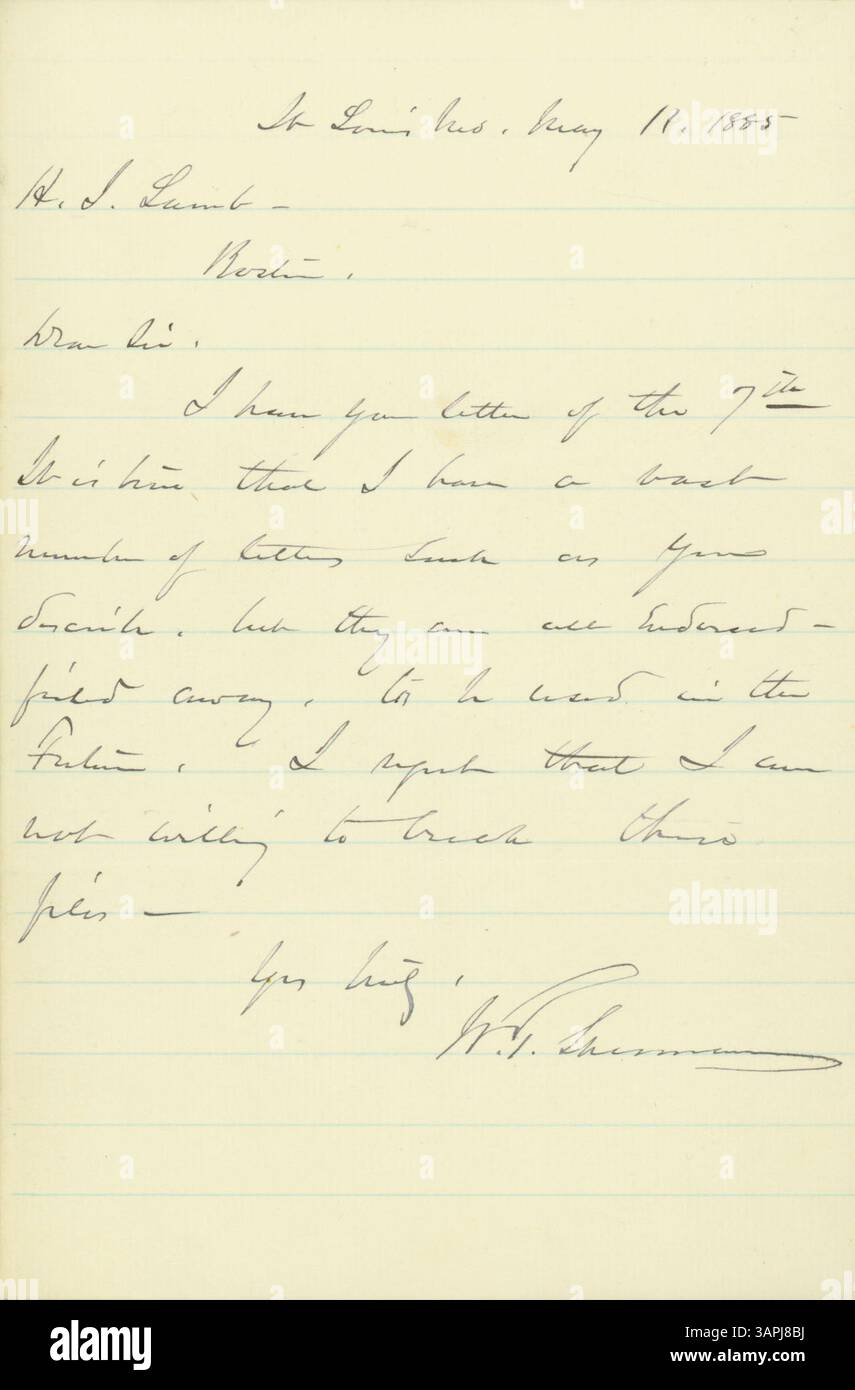 St Louis Mo. May 12, 1885
H. I. Lamb -
Boston.
Dear Sir.
I have your letter of the 7th
It is true that I have a vast
number of letters such as you
describe, but they are all Endorsed -
filed away, to be used in the
Future. I regret that I am
not willing to break these
files -
Yrs truly,
W. T. Sherman
alamy
Image ID: 3APJ8BJ
www.alamy.com